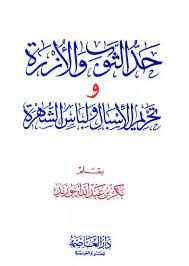 حد الثوب والأزرة
و
تحريم الإسبال ولباس الشهرة
بقلم
بكر بن عبد الله أبو زيد
دار العاصمة
للنشر والتوزيع